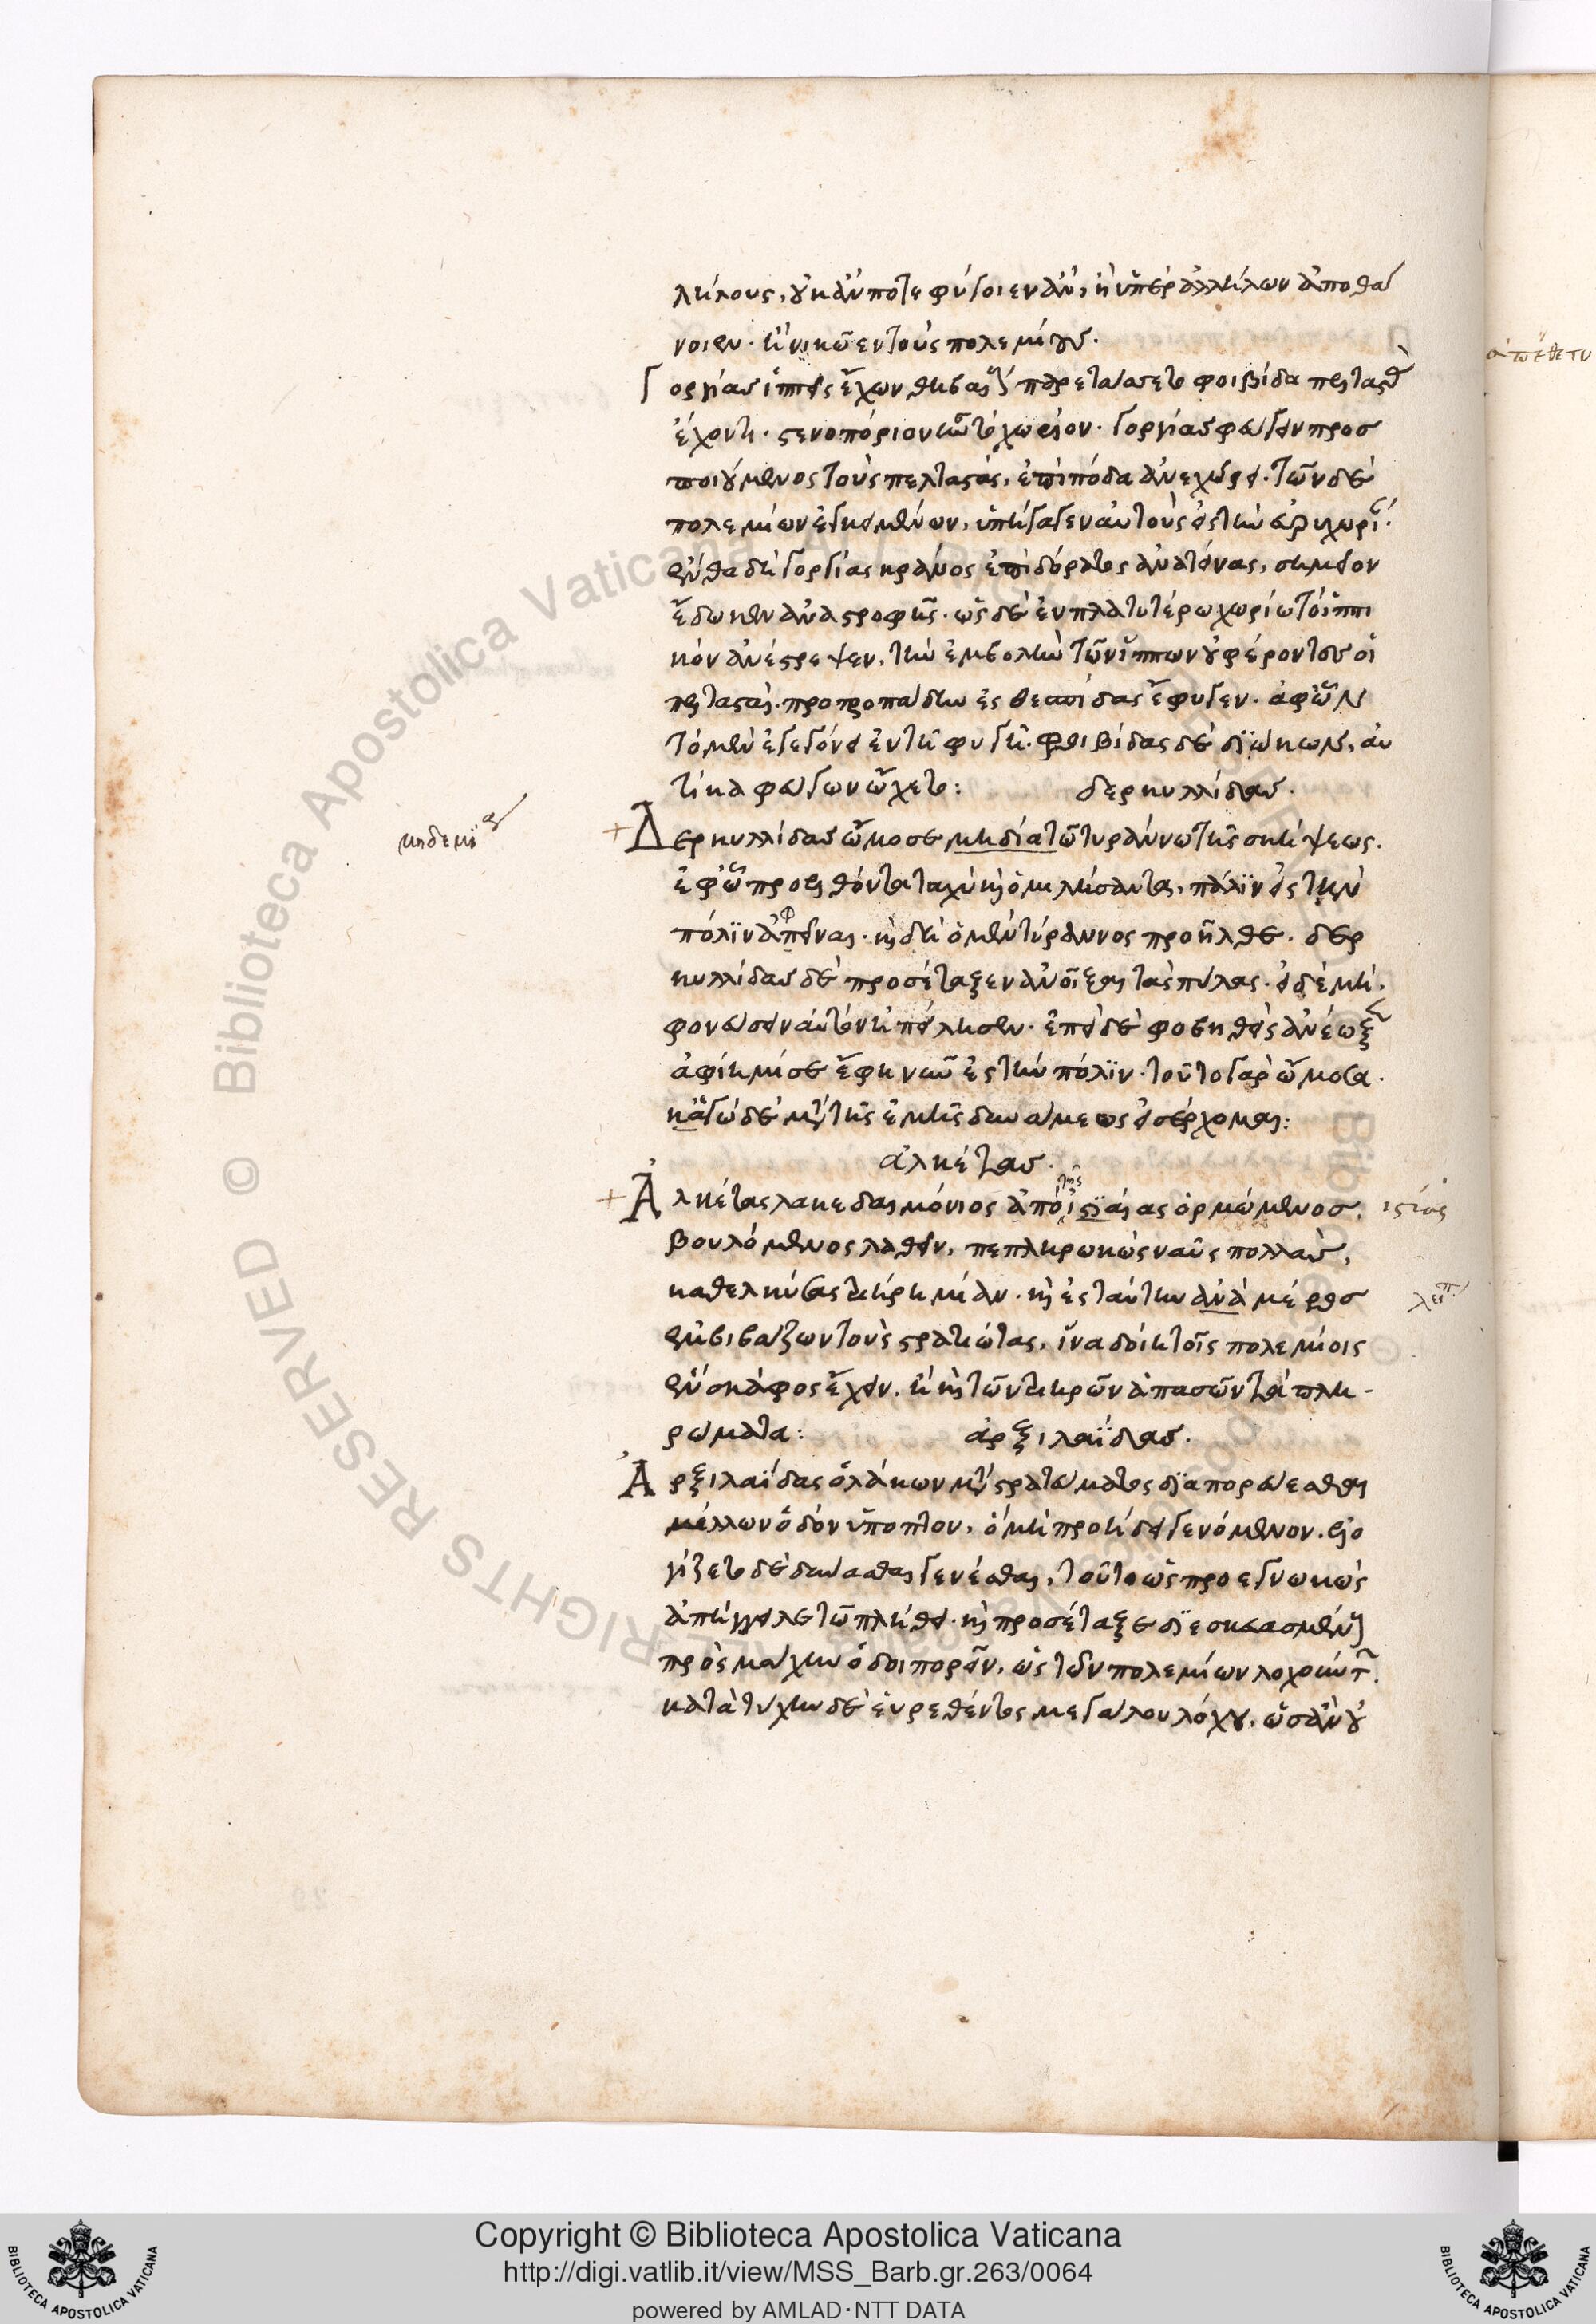 λήλους, οὐκ ἄν ποτε φύγοιεν ἂν, ἢ ὑπὲρ ἀλλήλων ἀποθά
νοιεν. ἢ νικῶεν τοὺς πολεμίους.
Γοργίας ἵππους ἔχων θηβαί παρετάσσετο φοιβίδα πελταστ
ἔχοντι. στενοπόριον ἦν τὸ χωρίον. Γοργίας φεύγειν προσ
ποιούμενος τοὺς πελταστὰς, ἐπὶ πόδα ἀνεχώρει. τῶν δὲ
πολεμίων ἐγκειμένων, ὑπήγαγεν αὐτοὺς εἰς τὴν εὐρυχωρί
ἔνθα δὴ Γοργίας κράνος ἐπὶ δόρατος ἀνατείνας, σημεῖον
ἔδωκεν ἀναστροφῆς. ὡς δὲ ἐν πλατυτέρω χωρίω τὸ ἱππι
κὸν ἀνέστρεψεν, τὴν ἐμβολὴν τῶν ἵππων οὐ φέροντες οἱ
πελτασταὶ. προτροπάδην ἐς θεσπίδας ἔφυγεν. ἀφ' ὧν
τὸ μὲν ἐγεγόνει ἐν τῆ φυγῆ. φοιβίδας δὲ διώκων, αὐ
τίκα φεύγων ὤχετο: δερκυλλίδας.
Δερκυλλίδας ὤμοσε μηδία τῶ τυράννω τῆς σκήψεως.
ἐφ' ὧ προελθόντα ταχὺ καὶ ὁμιλήσαντα, πάλιν εἰς τὴν
πόλιν ἀπεῖναι. καὶ δὴ ὁ μὲν τύραννος προῆλθε. δερ
κυλλίδας δὲ προσέταξεν ἀνοῖξαι τὰς πύλας. εἰ δὲ μὴ.
φονεύσειν αὐτὸν ἠπείλησεν. ἐπεὶ δὲ φοβηθεὶς ἀνέωξ
ἀφίημί σε ἔφη νῦν ἐς τὴν πόλιν. τοῦτο γὰρ ὤμοσα.
κἀγὼ δὲ μετὰ τῆς ἐμῆς δυνάμεως εἰσέρχομαι:
ἀλκέτας.
Ἀλκέτας λακεδαιμόνιος ἀπὸ ἱστιαίας ὁρμώμενος,
βουλόμενος λαθεῖν, πεπληρωκὼς ναῦς πολλὰς,
καθελκύσας τριήρη μίαν. καὶ ἐς ταύτην ἀνὰ μέρος
ἐμβιβάζων τοὺς στρατιώτας, ἵνα δόξη τοῖς πολεμίοις
ἓν σκάφος ἔχειν. ἢ καὶ τῶν τριηρῶν ἁπασῶν τὰ πλη-
ρώματα: ἀρξιλαΐδας.
Ἀρξιλαΐδας ὁ λάκων μετὰ στρατεύματος διαπορεύεσθαι
μέλλων ὁδὸν ὕποπτον, ὁ μὴ προήδει γενόμενον. ἐλο
γίζετο δὲ δύνασθαι γενέσθαι, τοῦτο ὡς προεγνωκὼς
ἀπήγγειλε τῶ πλήθει. καὶ προσέταξε διεσκευασμέν
πρὸς μάχην ὁδοιπορεῖν, ὡς τῶν πολεμίων λοχώντ.
κατὰ τύχην δὲ εὑρεθέντος μεγάλου λόχου, ὡς ἂν οὐ
Copyright © Biblioteca Apostolica Vaticana
http://digi.vatlib.it/view/MSS_Barb.gr.263/0064
powered by AMLAD·NTT DATA